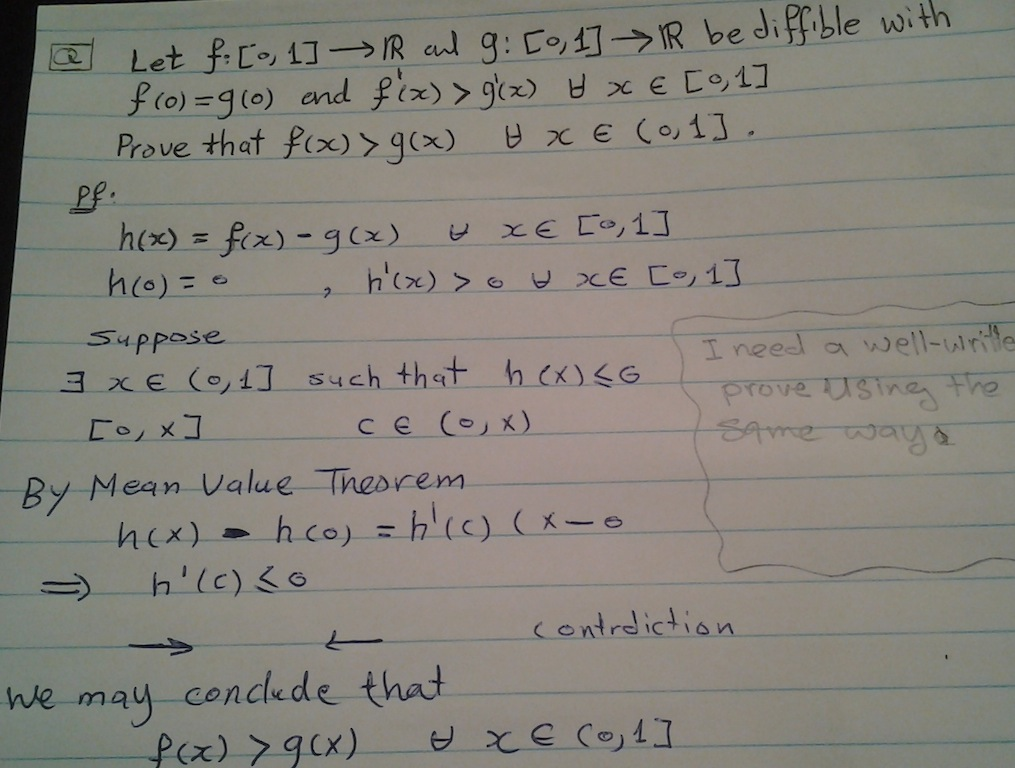 Q Let f: [0, 1] → ℝ and g: [0, 1] → ℝ be diffible with
f(0) = g(0) and f'(x) > g'(x) ∀ x ∈ [0, 1]
Prove that f(x) > g(x) ∀ x ∈ (0, 1].
Pf:
h(x) = f(x) - g(x) ∀ x ∈ [0, 1]
h(0) = 0 , h'(x) > 0 ∀ x ∈ [0, 1]
Suppose
∃ x ∈ (0, 1] such that h(x) ≤ 0
[0, x] c ∈ (0, x)
By Mean Value Theorem
h(x) - h(0) = h'(c) (x - 0
⇒ h'(c) ≤ 0
→ ← contrdiction
We may conclude that
f(x) > g(x) ∀ x ∈ (0, 1]
I need a well-writte
prove using the
same way.